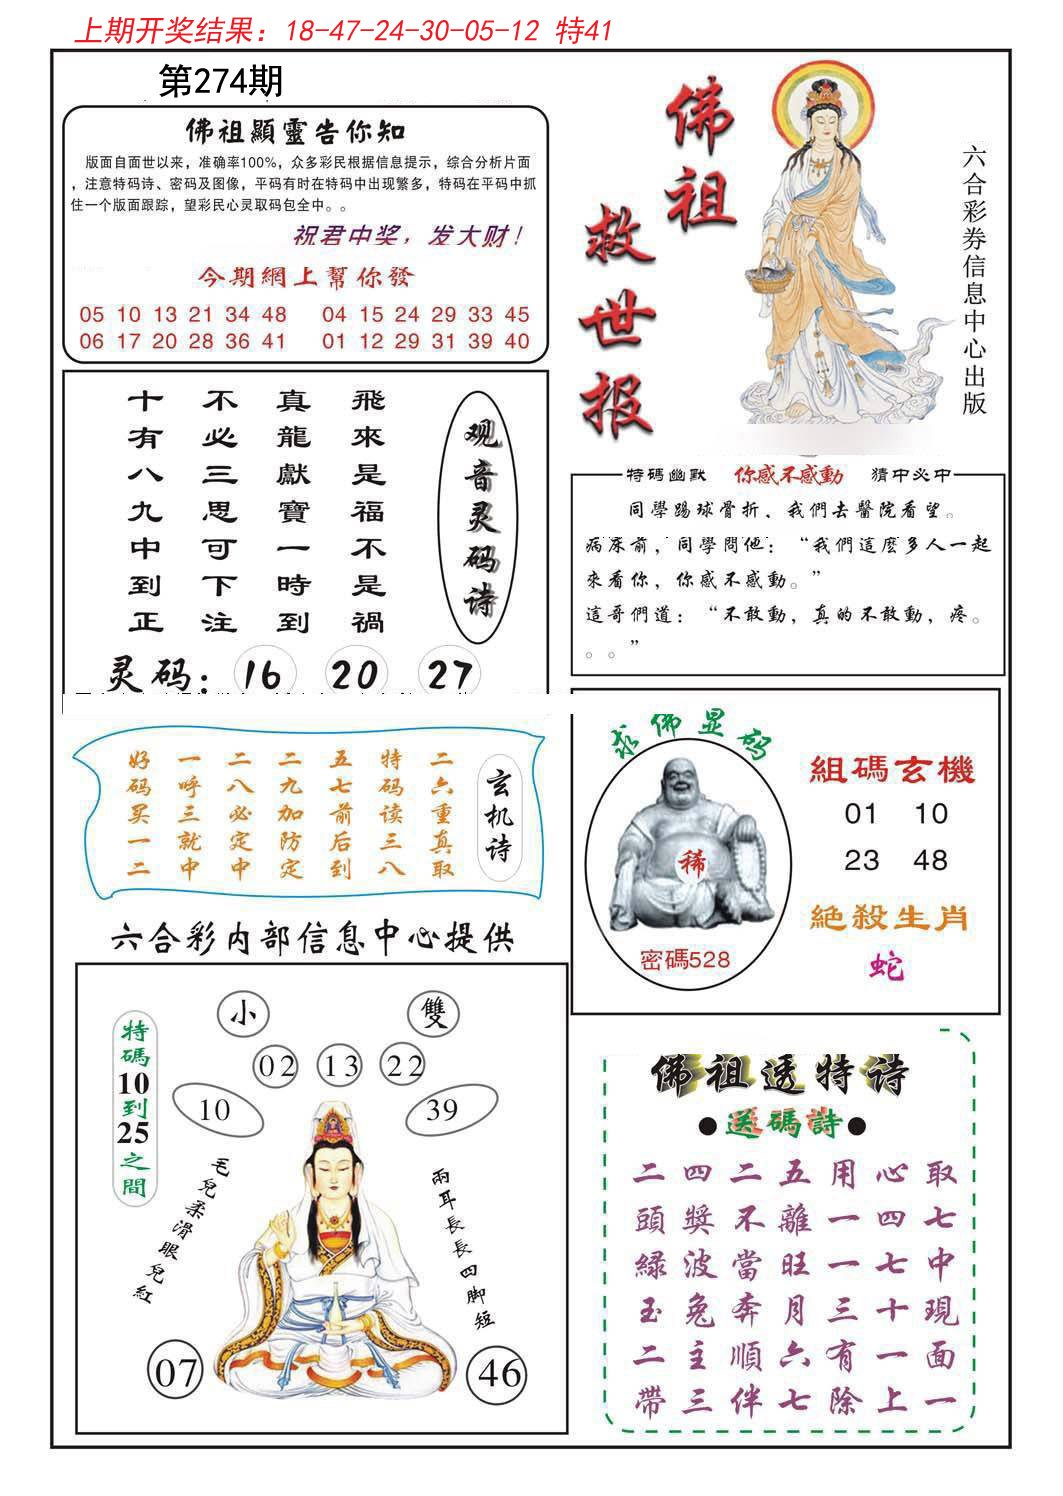 上期开奖结果：18-47-24-30-05-12 特41
第274期
佛祖顯靈告你知
版面自面世以来，准确率100%，众多彩民根据信息提示，综合分析片面
，注意特码诗、密码及图像，平码有时在特码中出现繁多，特码在平码中抓
住一个版面跟踪，望彩民心灵取码包全中。。
祝君中奖，发大财！
今期網上幫你發
05 10 13 21 34 48 04 15 24 29 33 45
06 17 20 28 36 41 01 12 29 31 39 40
佛祖
救世报
六合彩券信息中心出版
观音灵码诗
飛來是福不是禍
真龍獻寶一時到
不必三思可下注
十有八九中到正
灵码：16 20 27
特碼幽默 你感不感動 猜中必中
同學踢球骨折、我們去醫院看望。
病床前，同學問他：“我們這麽多人一起
來看你，你感不感動。”
這哥們道：“不敢動，真的不敢動，疼。
。。”
玄机诗
二六重真取
特码读三八
五七前后到
二九加防定
二八必定中
一呼三就中
好码买一二
求佛显码
稀
密碼528
組碼玄機
01 10
23 48
絕殺生肖
蛇
六合彩内部信息中心提供
特碼10到25之間
小 雙
02 13 22
10 39
毛兒柔滑眼兒紅
兩耳長長四脚短
07 46
佛祖透特诗
●送碼詩●
二四二五用心取
頭獎不離一四七
緑波當旺一七中
玉兔奔月三十現
二主順六有一面
帶三伴七除上一